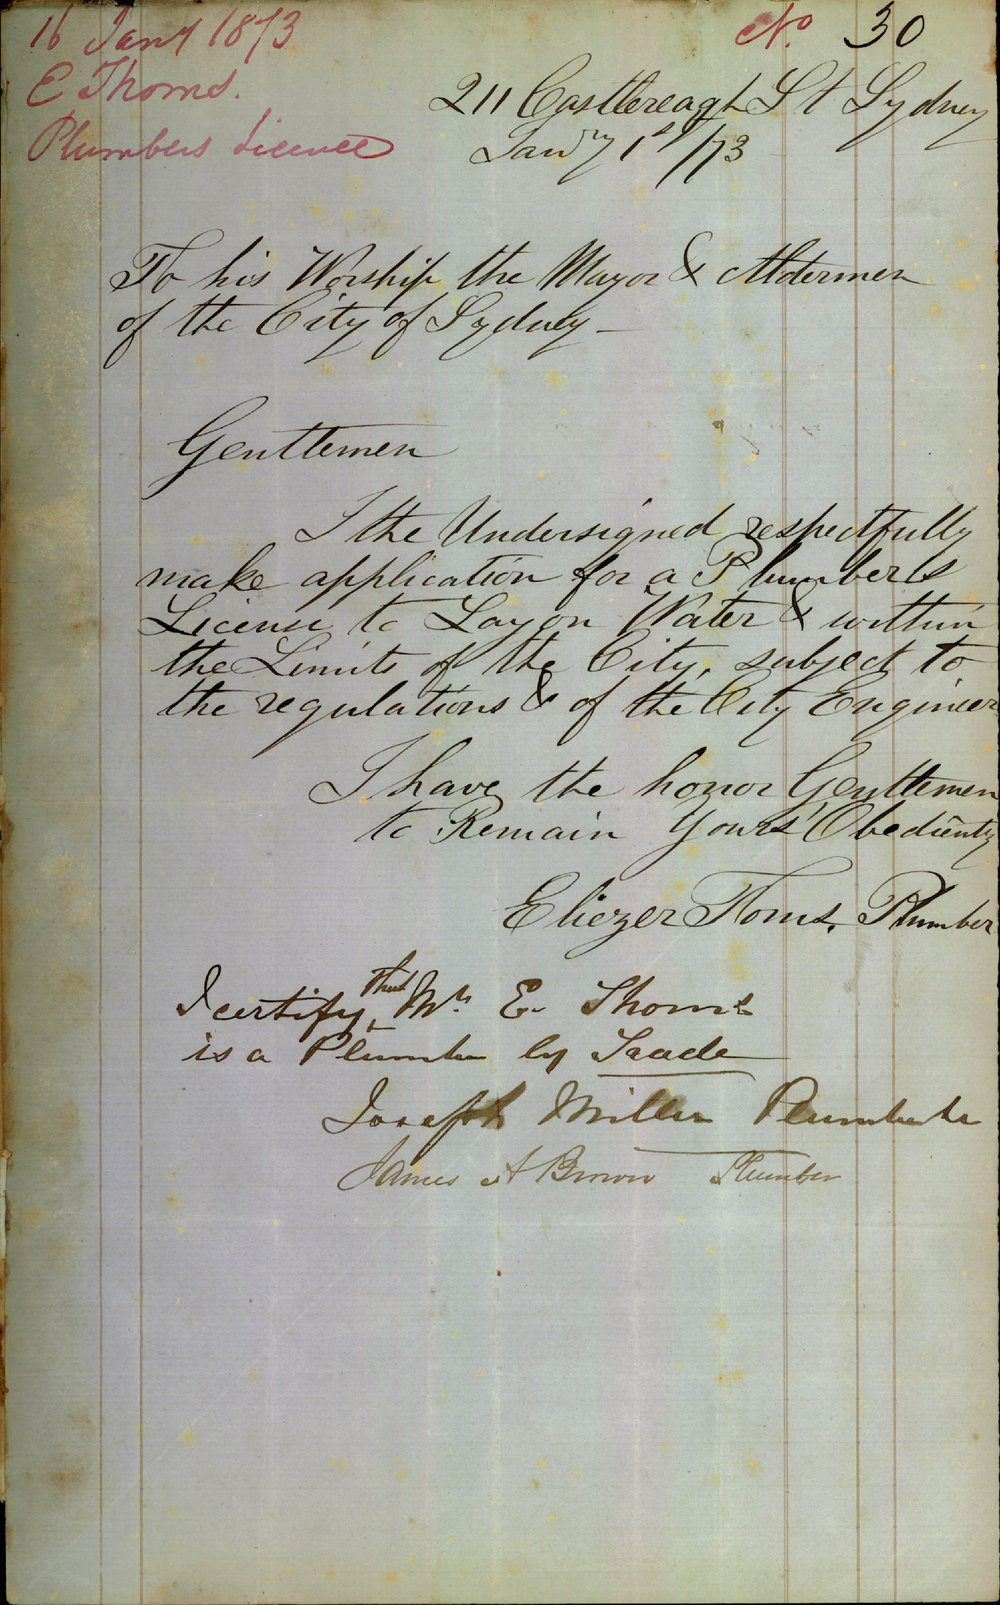 16 Jany 1873
E Thoms.
Plumbers Licence
No. 30
211 Castlereagh St Sydney
Jany 1st/73
To his Worship the Mayor & Aldermen
of the City of Sydney —
Gentlemen
I the Undersigned respectfully
make application for a Plumbers
License to Lay on Water & within
the Limits of the City, subject to
the regulations & of the City Engineer
I have the honor Gentlemen
to Remain Yours Obediently
Eliezer Toms. Plumber
I certify that Mr E. Thoms
is a Plumber by Trade
Joseph Miller Plumber
James A Brown Plumber